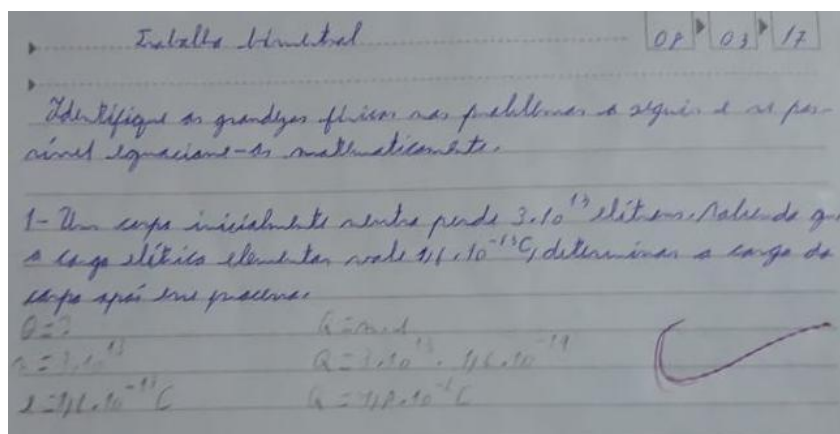 Trabalho bimestral 08 03 17
Identifique as grandezas físicas nos problemas a seguir e se pos-
sível equacione-os matematicamente.
1- Um corpo inicialmente neutro perde 3.10¹³ elétrons. Sabendo que
a carga elétrica elementar vale 1,6.10⁻¹⁹C, determinar a carga do
corpo após esse processo.
Q=? Q=n.e
n=3.10¹³ Q=3.10¹³.1,6.10⁻¹⁹
e=1,6.10⁻¹⁹C Q=4,8.10⁻⁶C